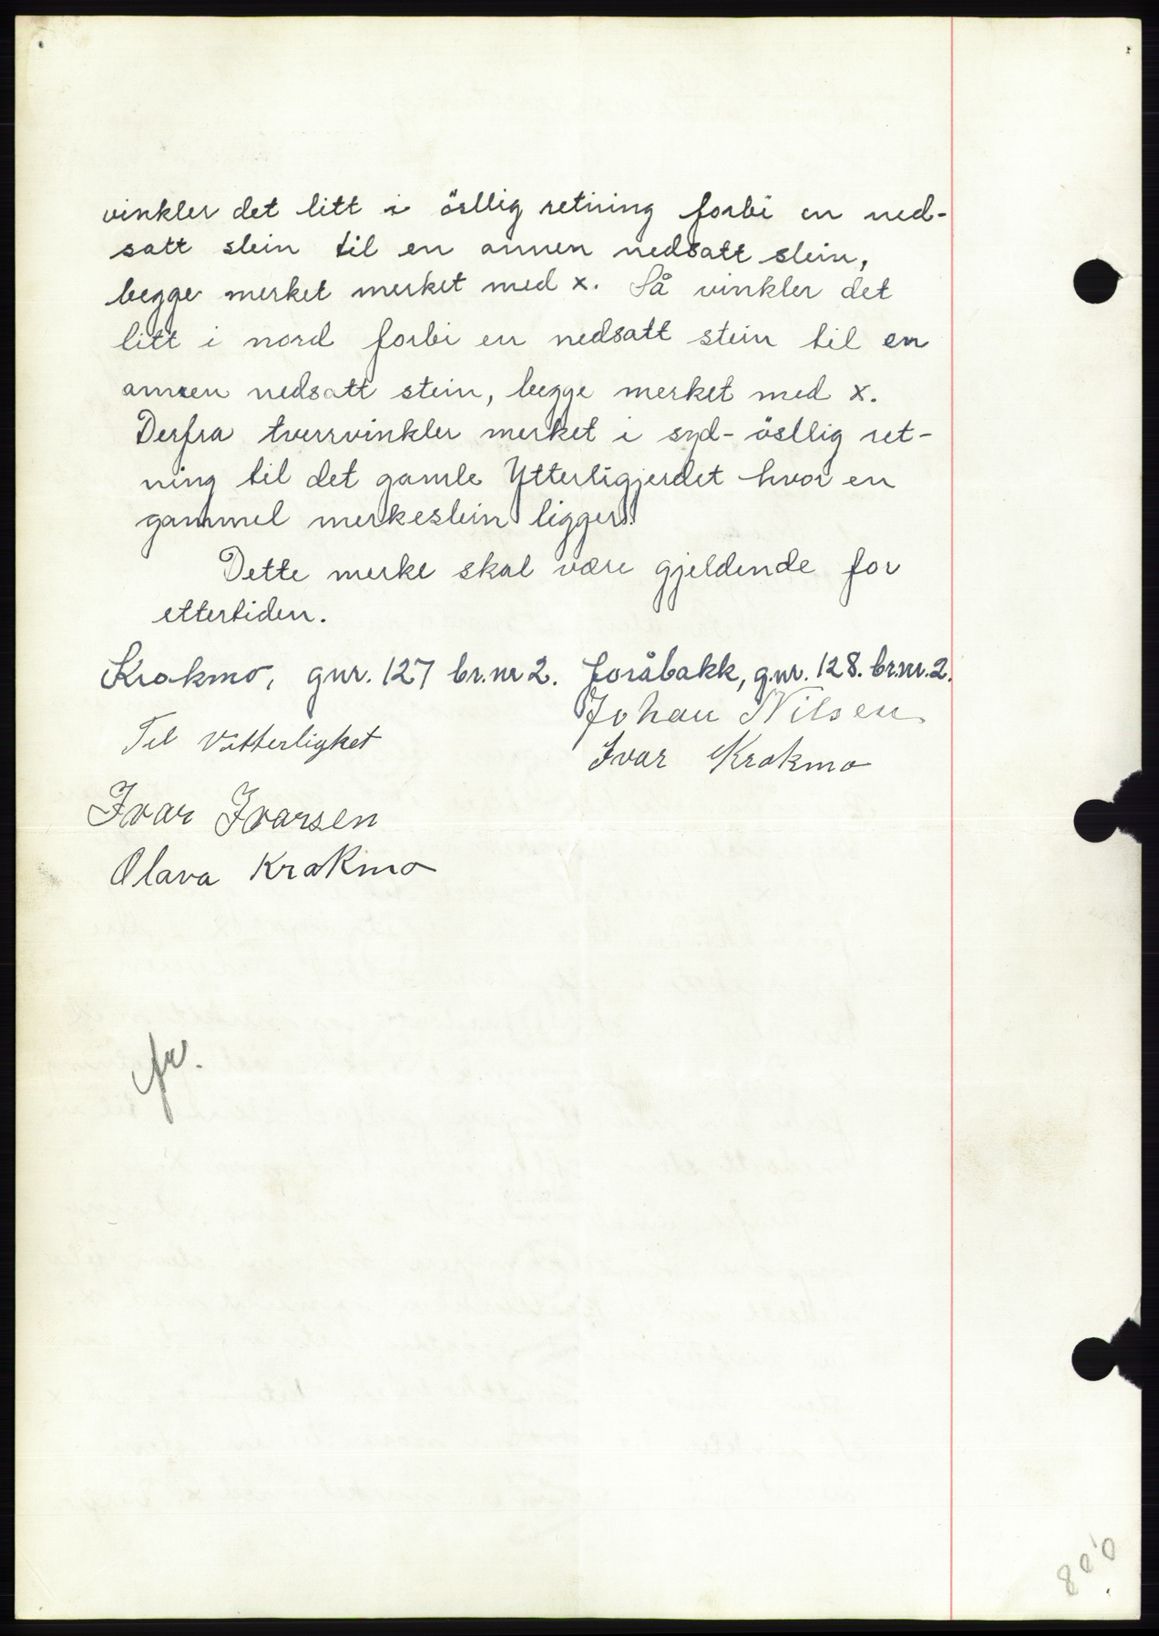 vinkler det litt i östlig retning forbi en ned-
satt stein til en annen nedsatt stein,
begge merket merket med x. Så vinkler det
litt i nord forbi en nedsatt stein til en
annen nedsatt stein, begge merket med x.
Derfra tverrvinkler merket i syd-östlig ret-
ning til det gamle Ytterligjerdet hvor en
gammel merkestein ligger.
Dette merke skal være gjeldende for
ettertiden.
Krokmo, gnr. 127 br.nr 2. Joråbakk, g.nr. 128. br.nr. 2.
Johan Nilsen
Til Vitterlighet
Ivar Krokmo
Ivar Ivarsen
Olava Krokmo